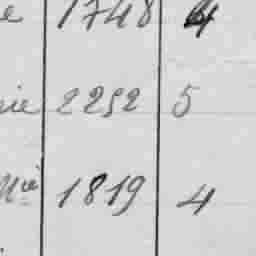 e 1748 4
ie 2252 5
Mie 1819 4